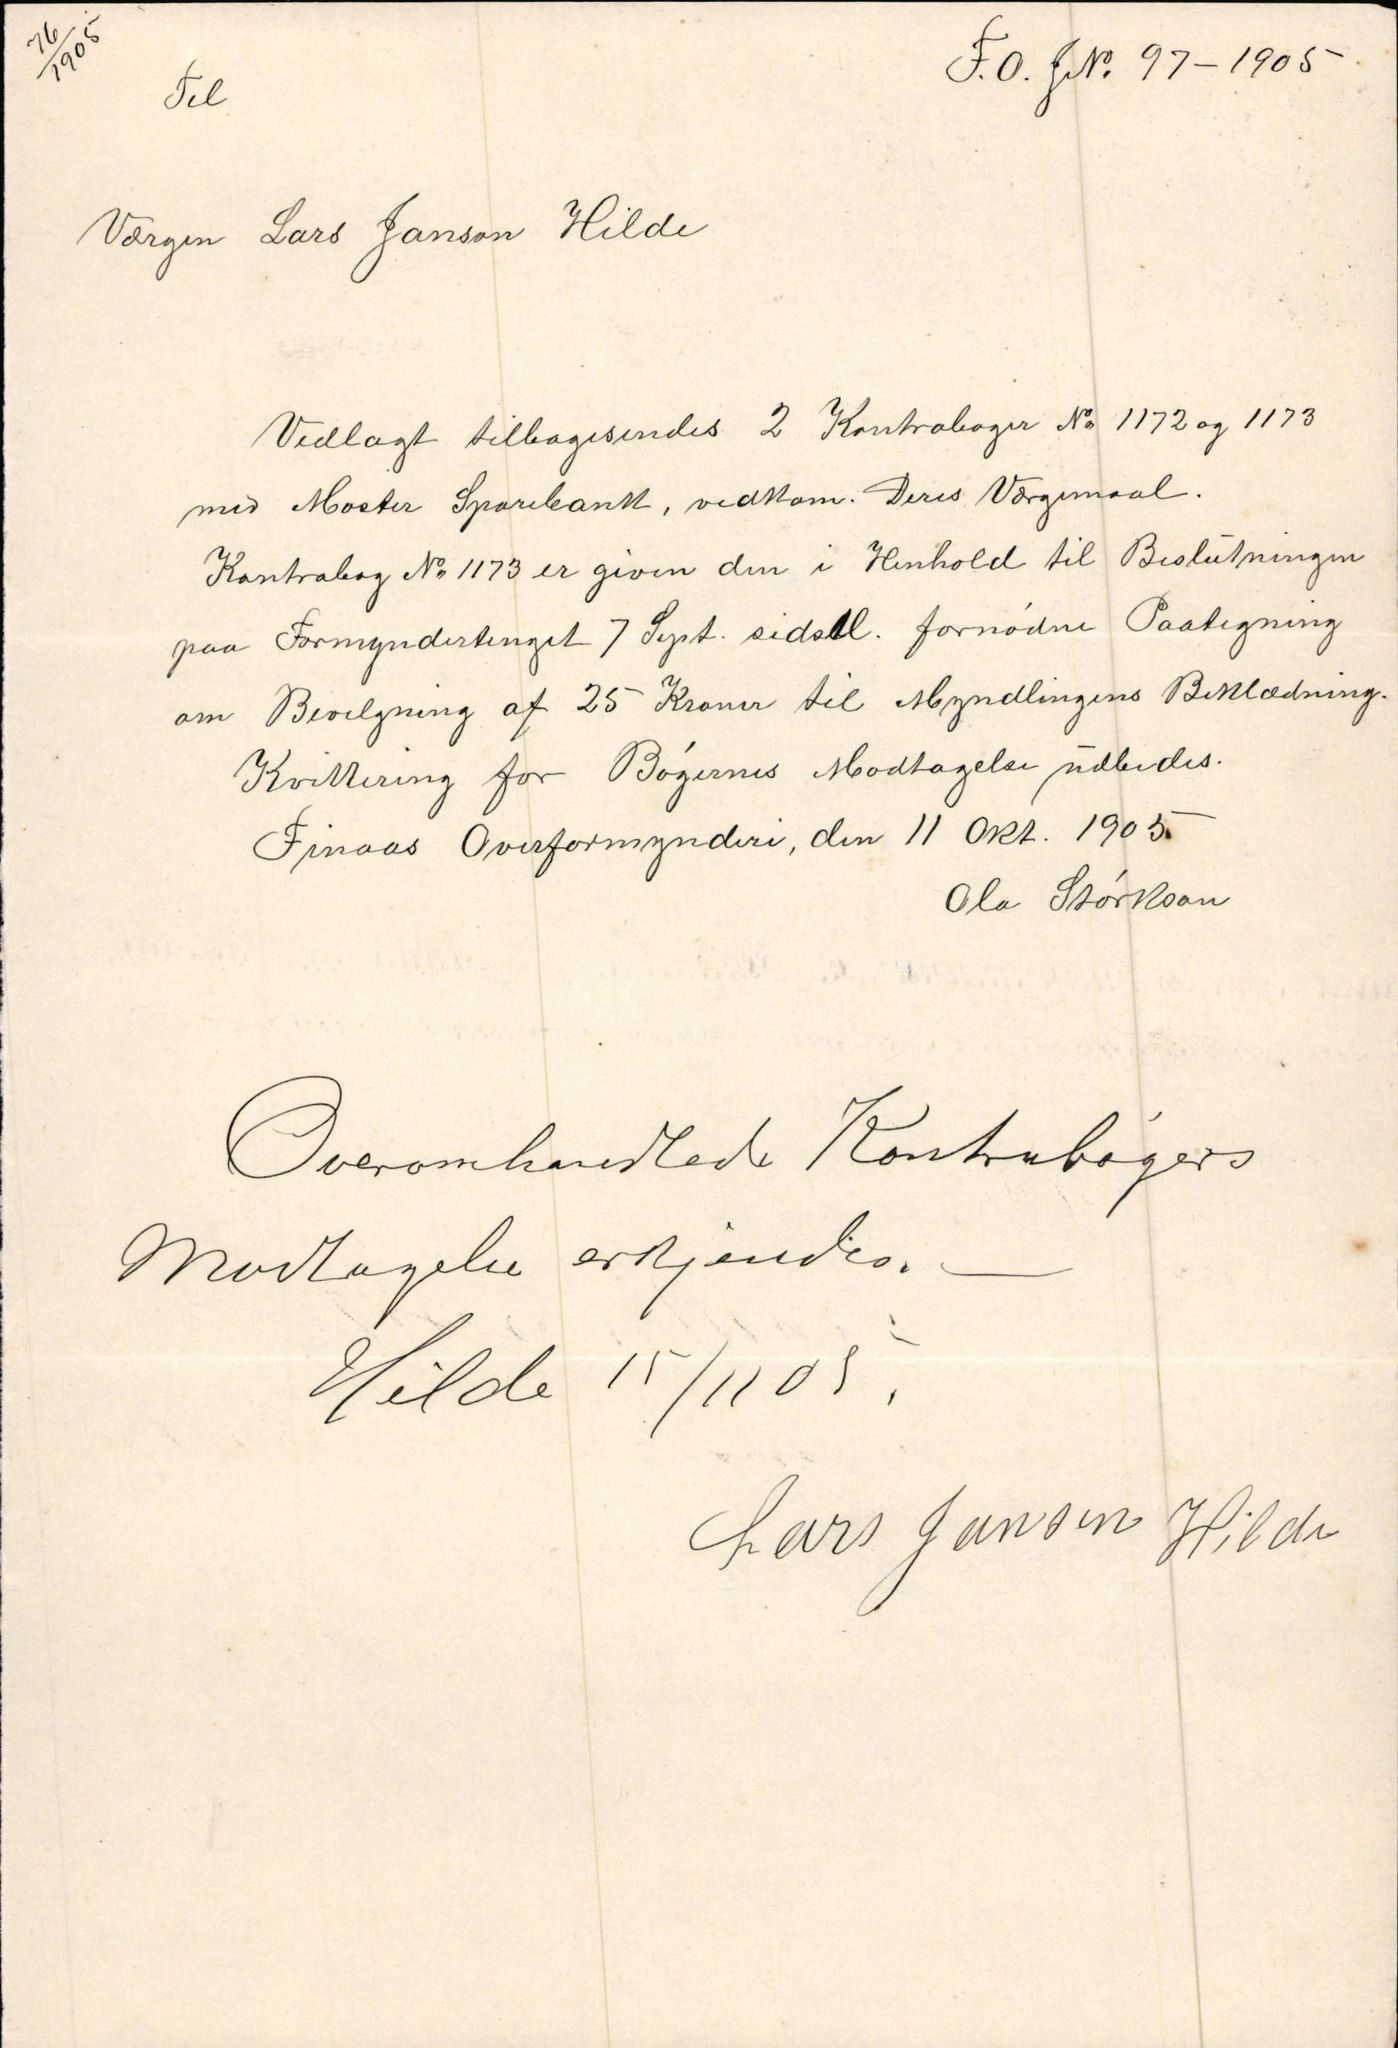 76/1905
F.O. J.No. 97-1905
Til
Værgen Lars Janson Hilde
Vedlagt tilbagesendes 2 Kontrabøger No 1172 og 1173
med Moster Sparebank, vedkom. Deres Værgemaal.
Kontrabog No 1173 er given den i Henhold til Beslutningen
paa Formyndertinget 7 Sept. sidstl. fornødne Paategning
om Bevilgning af 25 Kroner til Myndlingens Beklædning.
Kvittering for Bøgernes Modtagelse udbedes.
Finaas Overformynderi, den 11 Okt. 1905.
Ola Størkson
Overomhandlede Kontrabøgers
Modtagelse erkjendes.
Hilde 15/11 05.
Lars Jansen Hilde